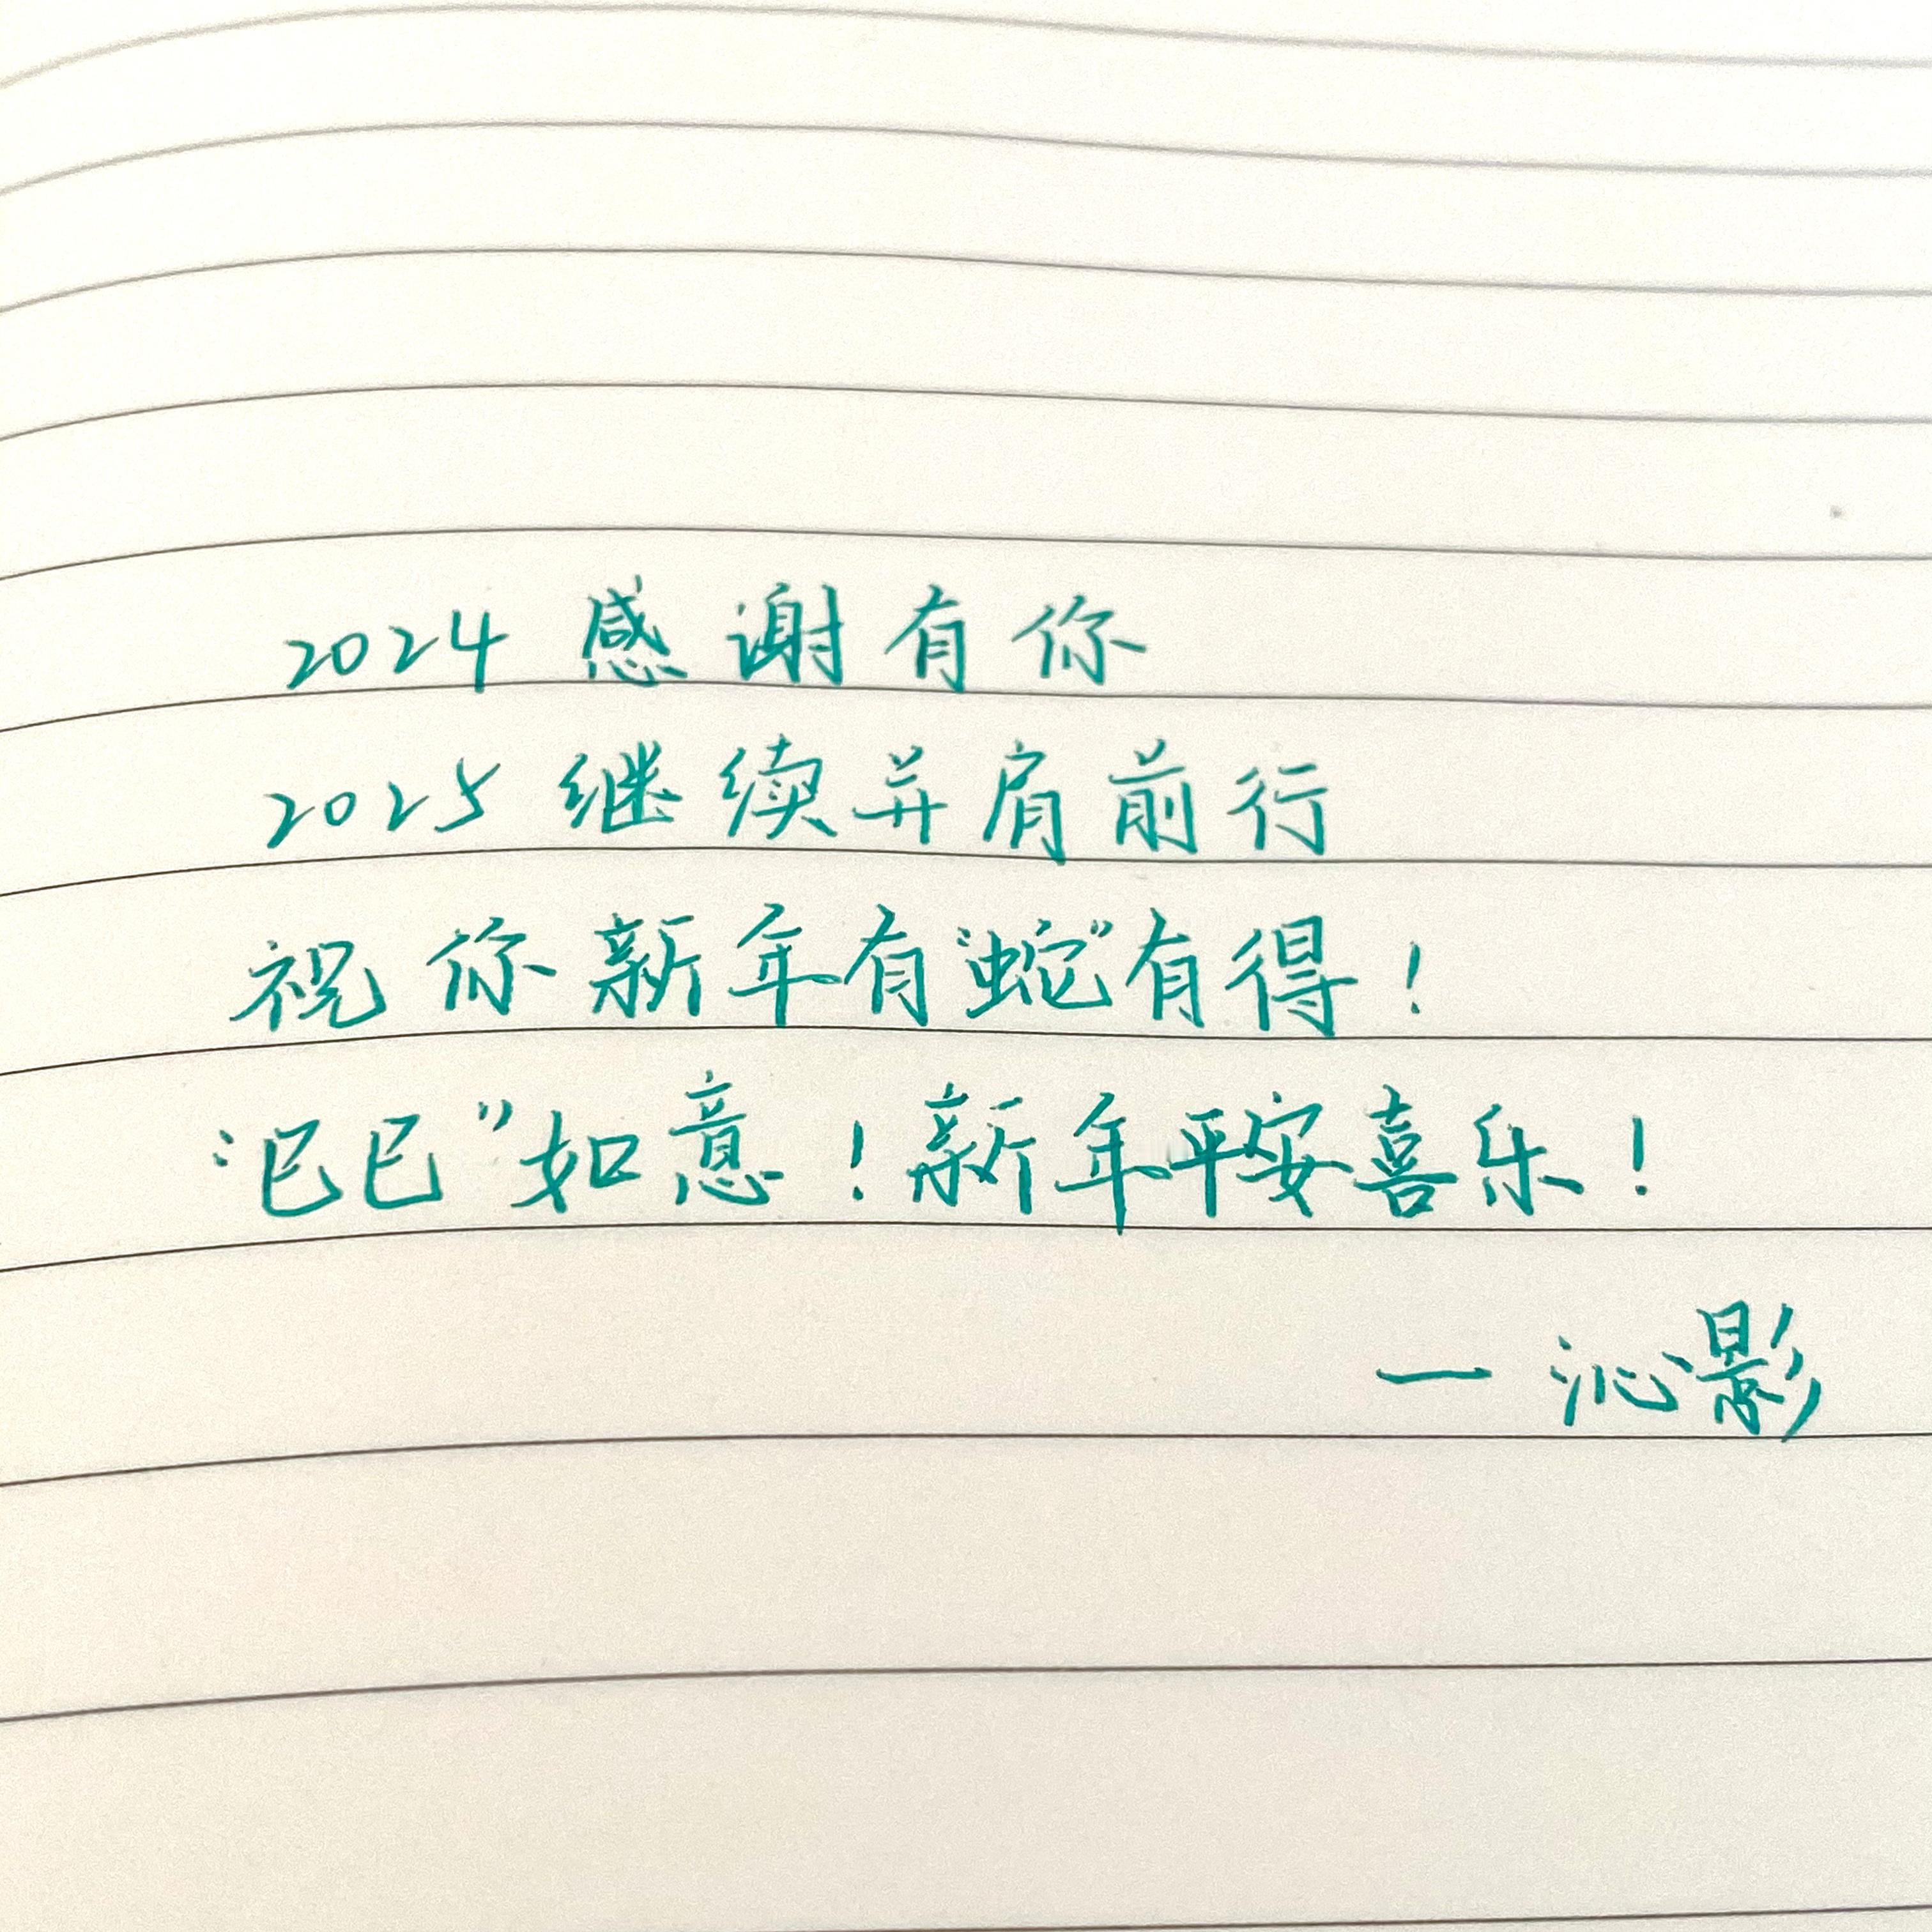 2024 感谢有你
2025 继续并肩前行
祝你新年有“蛇”有得!
“巳巳”如意!新年平安喜乐!
— 沁影